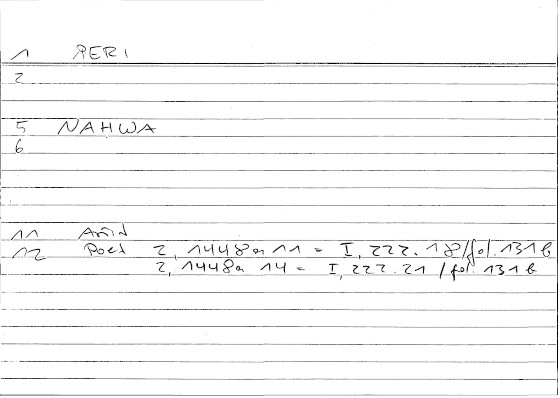 1 PERI
2
5 NAHWA
6
11 Arist
12 Poet 2, 1448a 11 = I, 222.18/fol. 131b
2, 1448a 14 = I, 222.21/fol. 131b